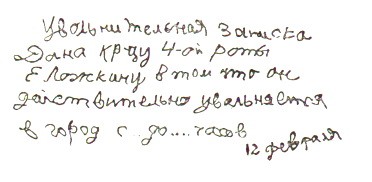 Увольнительная записка
Дана кр-цу 4-ой роты
Еложкину в том что он
действительно увольняется
в город с .. до .... часов
12 февраля